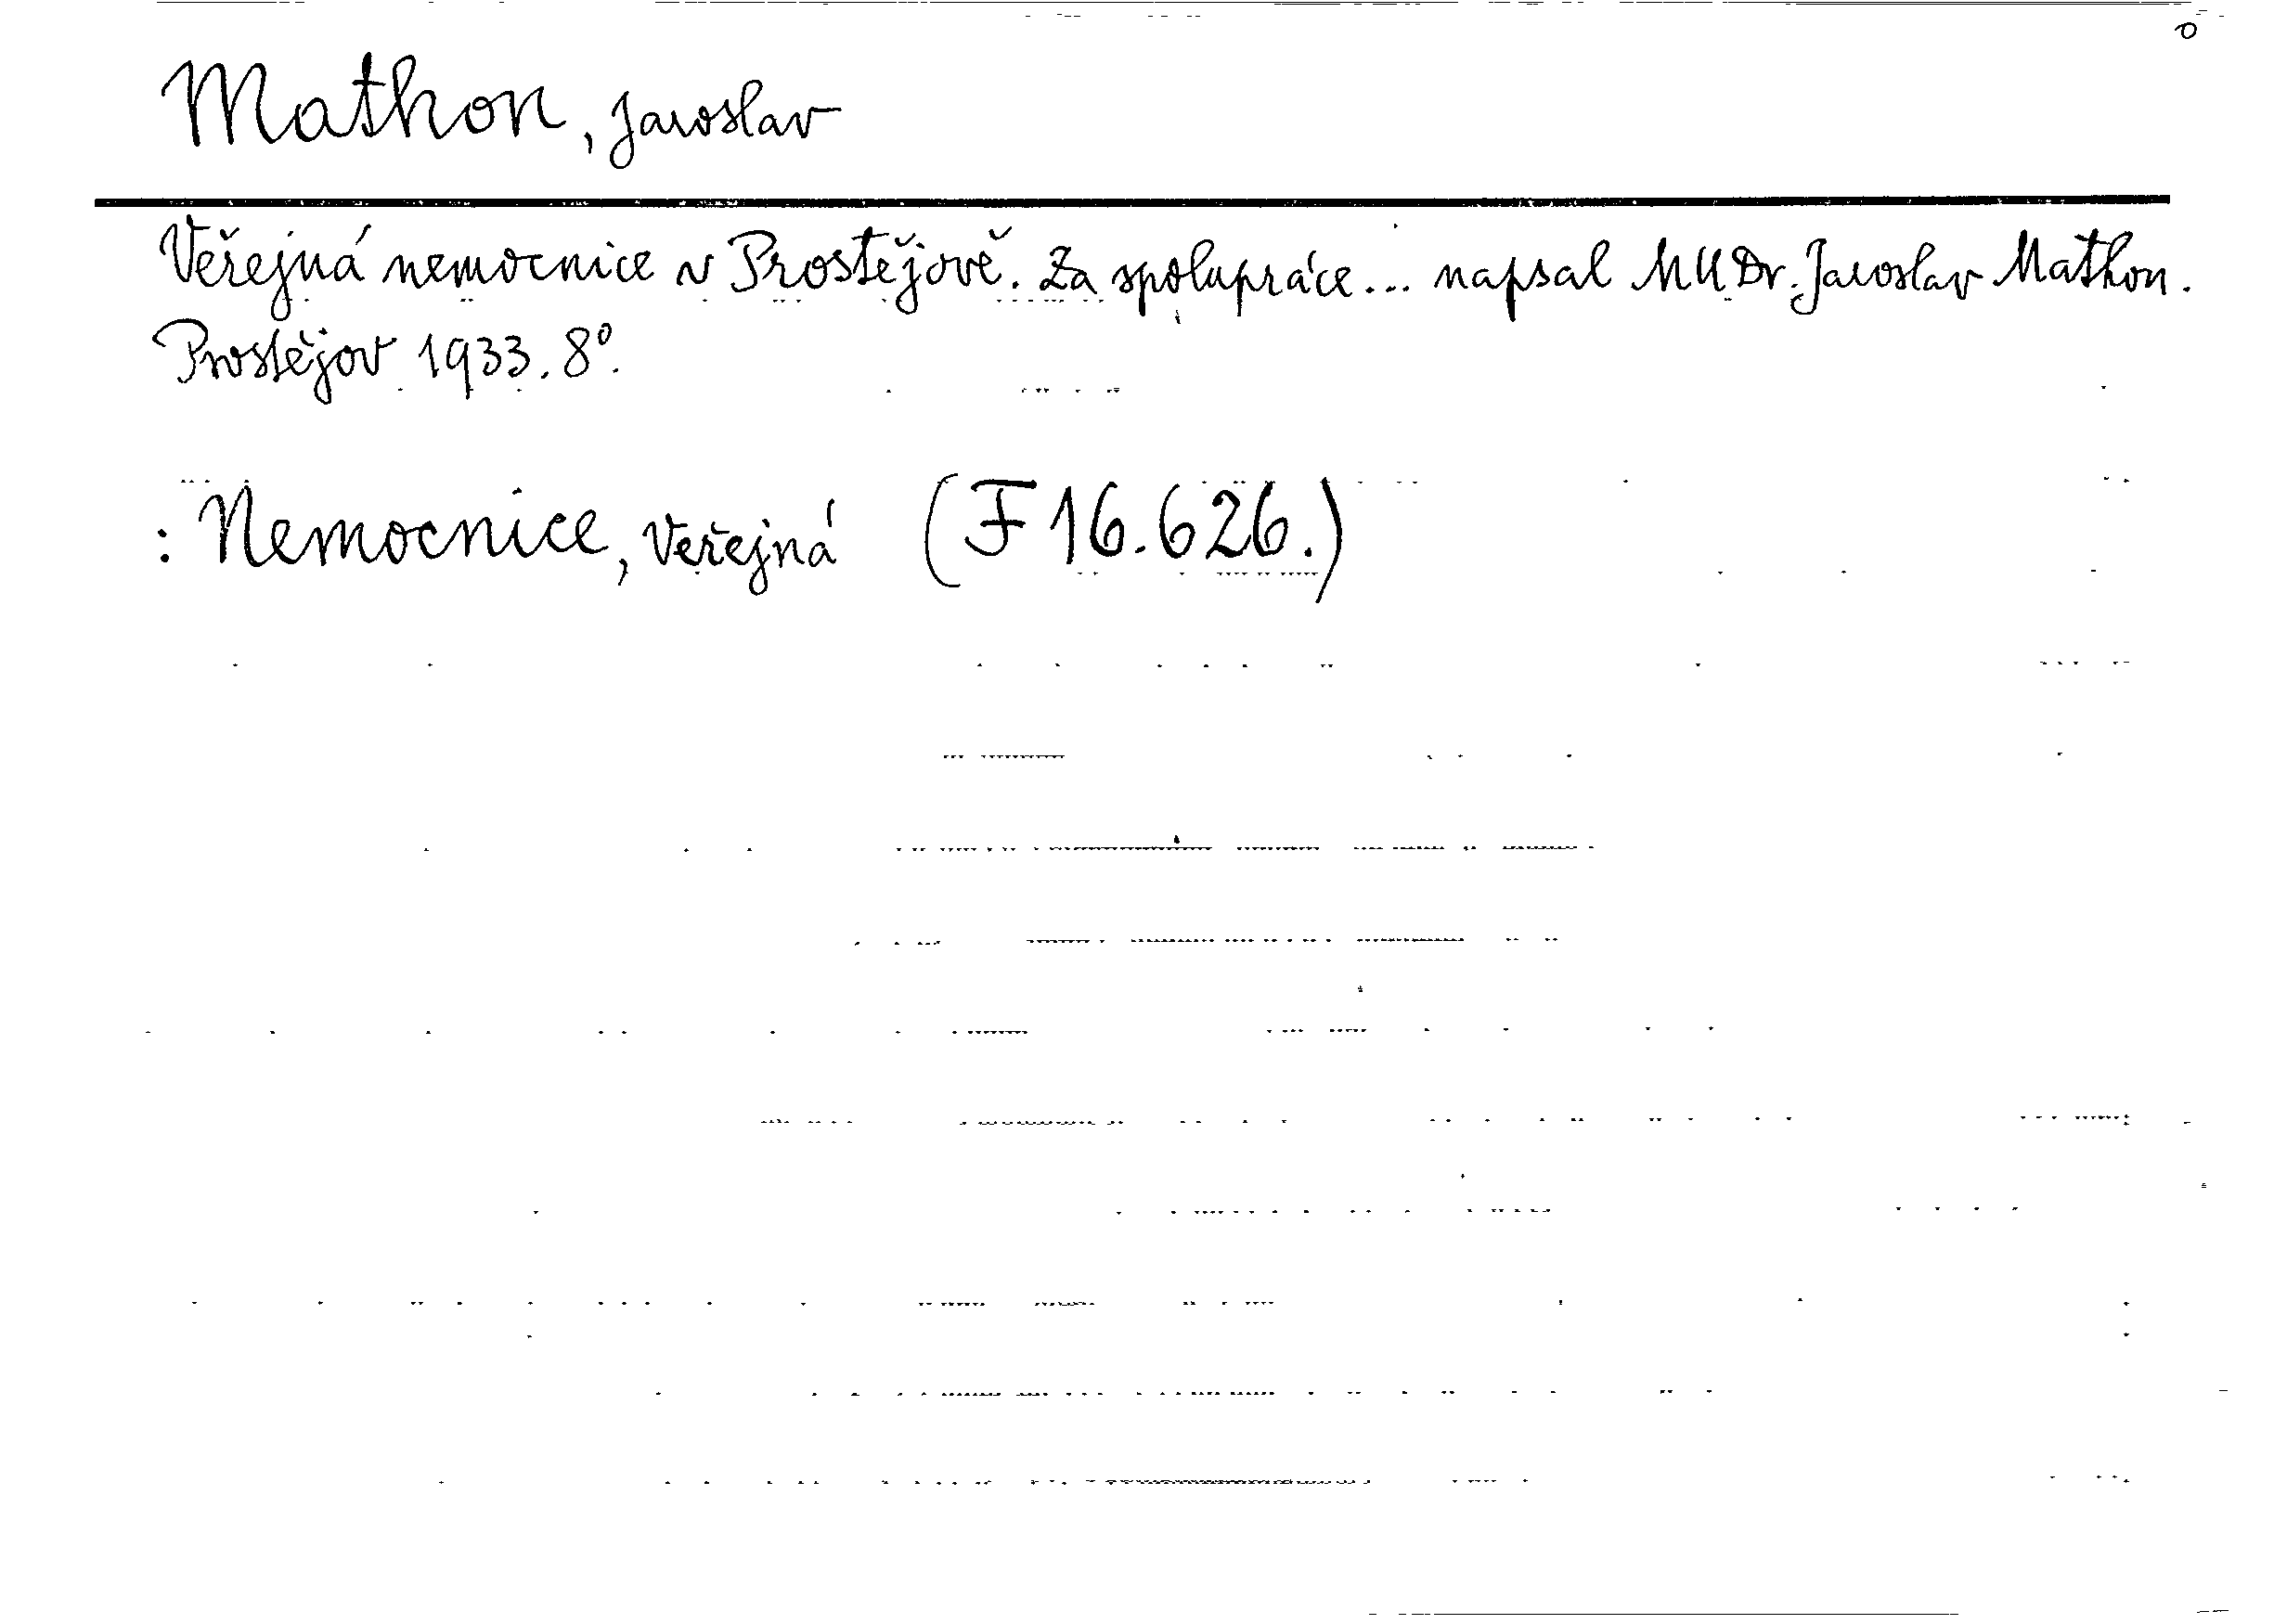 Mathon, Jaroslav
Veřejná nemocnice v Prostějově. Za spolupráce... napsal MUDr. Jaroslav Mathon.
Prostějov 1933. 8°.
: Nemocnice, veřejná (F 16.626.)